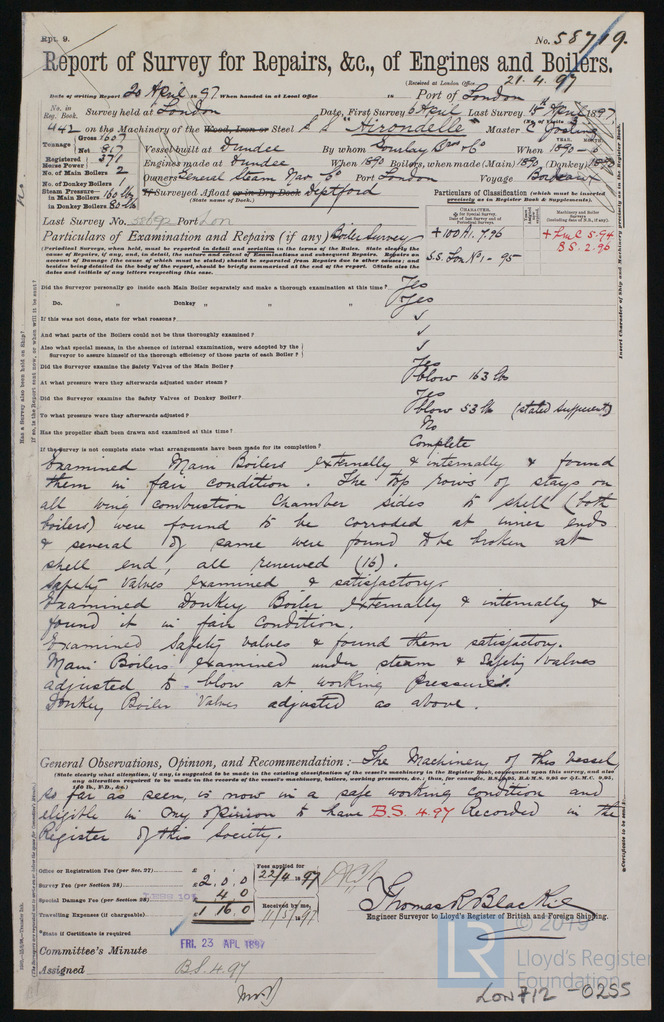 Rpt. 9.
No. 58719.
Report of Survey for Repairs, &c., of Engines and Boilers.
(Received at London Office 21.4.97
Date of writing Report 20 April 1897 When handed in at Local Office 18 Port of London
No. in Reg. Book. Survey held at London Date, First Survey 6 April Last Survey 15th April 1897
442 on the Machinery of the Wood, Iron or Steel S S "Hirondelle" Master C Gosling
Tonnage Gross 1607 Net 817 Vessel built at Dundee By whom Gourlay Bros & Co When 1890 - 5
Registered Horse Power 371 Engines made at Dundee When 1890 Boilers, when made (Main) 1890 (Donkey) 1890
No. of Main Boilers 2 Owners General Steam Nav Co Port London Voyage Bordeaux
No. of Donkey Boilers 1
Steam Pressure in Main Boilers 160 lbs If Surveyed Afloat or in Dry Dock Deptford
(State name of Dock.)
in Donkey Boilers 80 lbs
Particulars of Classification (which must be inserted precisely as in Register Book & Supplements).
Last Survey No. Port Lon
Particulars of Examination and Repairs (if any) Boiler Survey
+100A1. 7.96
S.S. Lon No 1 - 95
+ L.M.C 5.94
B.S. 2.96
Did the Surveyor personally go inside each Main Boiler separately and make a thorough examination at this time? Yes
Do. Donkey " " " Yes
If this was not done, state for what reasons? ✓
And what parts of the Boilers could not be thus thoroughly examined? ✓
Also what special means, in the absence of internal examination, were adopted by the Surveyor to assure himself of the thorough efficiency of those parts of each Boiler? ✓
Did the Surveyor examine the Safety Valves of the Main Boiler? Yes
At what pressure were they afterwards adjusted under steam? blow 163 lbs
Did the Surveyor examine the Safety Valves of Donkey Boiler? Yes
To what pressure were they afterwards adjusted? blow 53 lb (stated sufficient)
Has the propeller shaft been drawn and examined at this time? No
If the Survey is not complete state what arrangements have been made for its completion? Complete
Examined Main Boilers externally & internally & found
them in fair condition. The top rows of stays on
all wing combustion chamber sides to shell (both
boilers) were found to be corroded at inner ends
& several of same were found to be broken at
shell end, all renewed (16).
Safety valves examined & satisfactory.
Examined Donkey Boiler externally & internally &
found it in fair condition.
Examined Safety valves & found them satisfactory.
Main Boilers examined under steam & Safety valves
adjusted to blow at working pressures.
Donkey Boiler valves adjusted as above.
General Observations, Opinion, and Recommendation:- The Machinery of this vessel
so far as seen, is now in a safe working condition and
eligible in my opinion to have B.S. 4.97 Recorded in the
Register of this Society.
Office or Registration Fee (per Sec. 27)
Survey Fee (per Section 28) £ 2.0.0
Special Damage Fee (per Section 28) 4 0
Travelling Expenses (if chargeable) £ 1 16.0
Fees applied for 22/4 1897
Received by me, 11/5/1897
Thomas R Blackie
Engineer Surveyor to Lloyd's Register of British and Foreign Shipping.
*State if Certificate is required
Committee's Minute FRI. 23 APL 1897
Assigned B.S. 4.97
© 2019
LR
Lloyd's Register
Foundation
LON712-0255